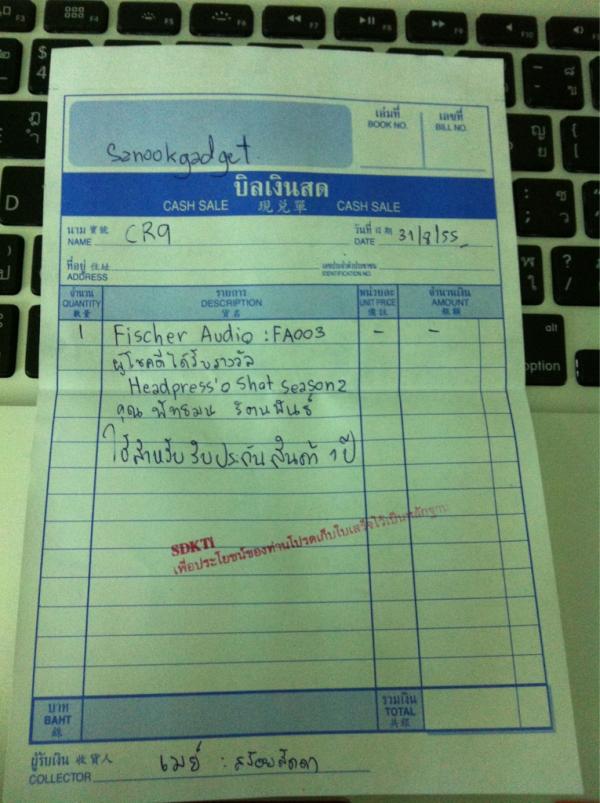 sanookgadget
เล่มที่
BOOK NO.
เลขที่
BILL NO.
บิลเงินสด
CASH SALE 現兌單 CASH SALE
นาม 寶號
NAME CR9
วันที่ 日期
DATE 31/8/55
ที่อยู่ 住址
ADDRESS
เลขประจำตัวประชาชน
IDENTIFICATION NO.
จำนวน รายการ หน่วยละ จำนวนเงิน
QUANTITY DESCRIPTION UNIT PRICE AMOUNT
數量 貨名 備註 銀額
1 Fischer Audio : FA003 - -
ผู้โชคดีได้รับรางวัล
Headpress'o Shot Season2
คุณ พัทธมน รัตนพันธ์
ใช้สำหรับ รับประกันสินค้า 1 ปี
SDKTI
เพื่อประโยชน์ของท่านโปรดเก็บใบเสร็จไว้เป็นหลักฐาน
บาท
BAHT
銖
รวมเงิน
TOTAL
共銀
ผู้รับเงิน 收貨人
COLLECTOR เมย์ : สร้อยลัดดา
F3
F4
F5
F6
F7
F8
F9
F10
$
4
D
alt
option